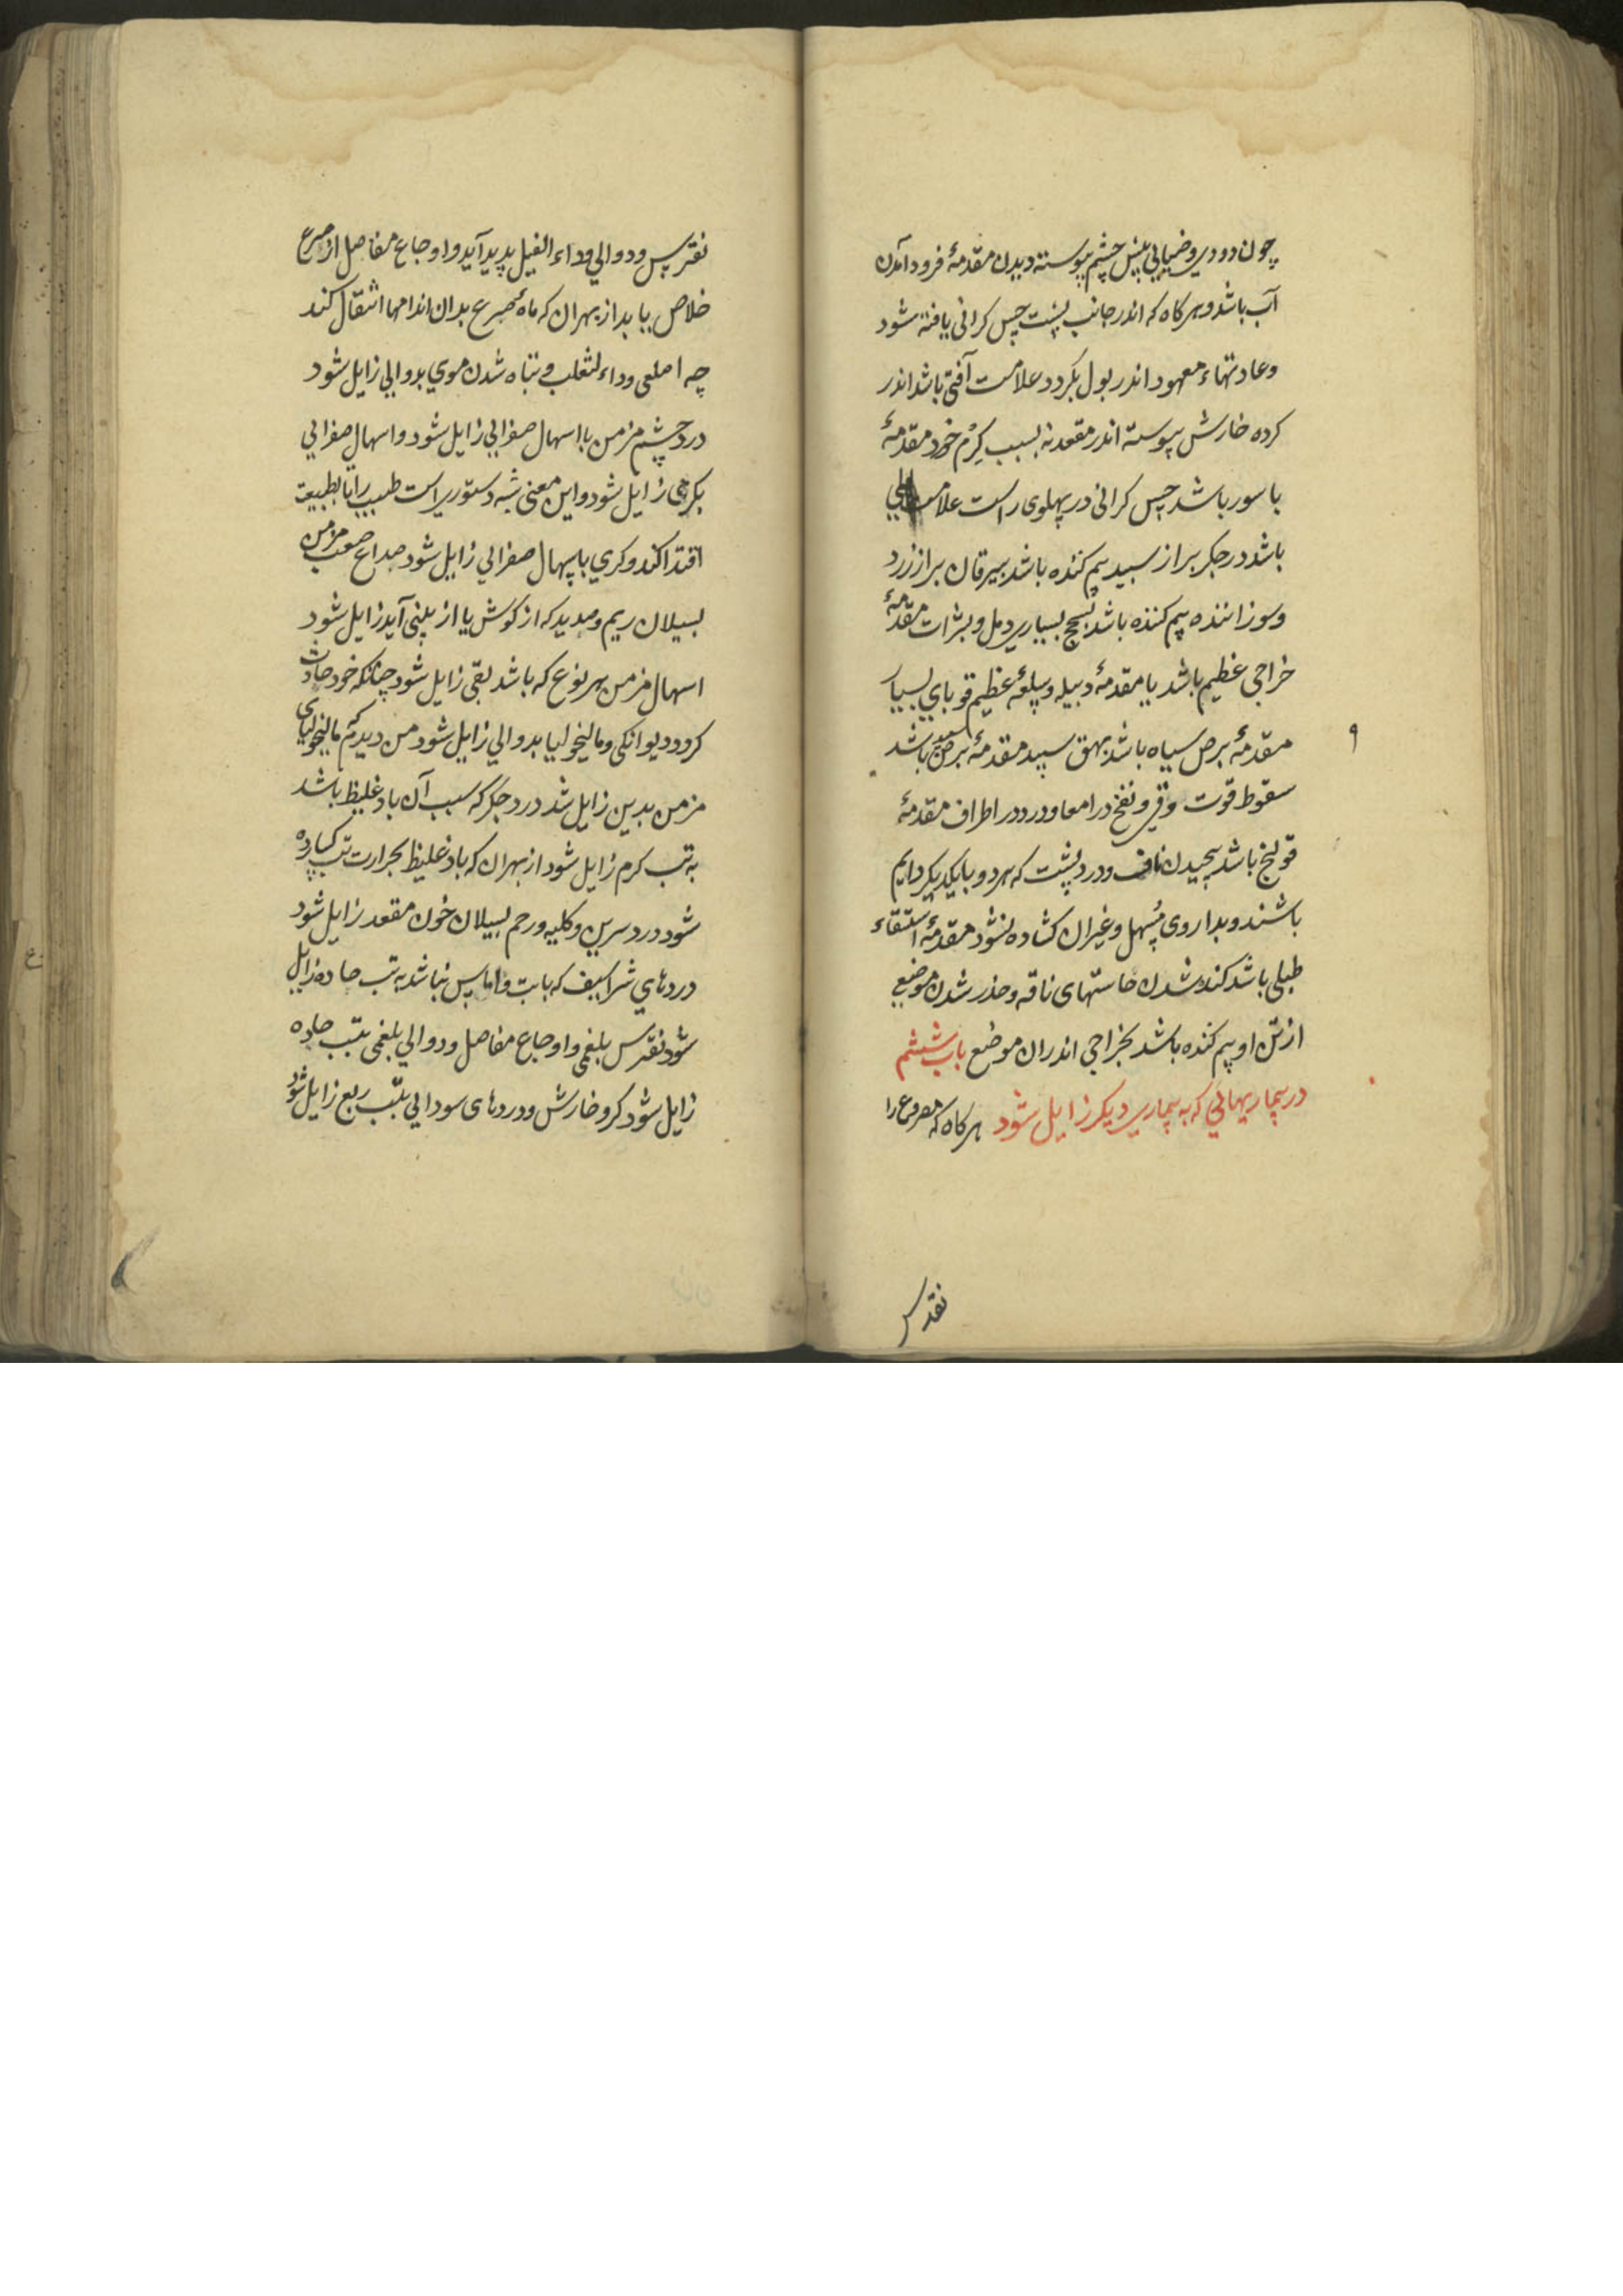 چون دودی و ضبابی پیش چشم پیوسته دیدن مقدمهٔ فرود آمدن
آب باشد و هر کاه که اندر جانب پشت حس کرانی یافته شود
و عادتهاء معهود اندر بول بکردد علامت آفتی باشد اندر
کرده خارش پیوسته اندر مقعد نه بسبب کرم خرد مقدمهٔ
باسور باشد حس کرانی در پهلوی راست علامت
باشد در جکر براز سپید بیم کننده باشد بیرقان براز زرد
و سوزاننده بیم کننده باشد بسحج بسیاری دمل و بثرات مقدمهٔ
خراجی عظیم باشد یا مقدمهٔ دبیله و سلعهٔ عظیم قوبای بسیار
مقدمهٔ برص سیاه باشد بهق سپید مقدمهٔ برص سپید باشد
۹
سقوط قوت و قی و نفخ در امعا و درد در اطراف مقدمهٔ
قولنج باشد پیچیدن ناف و درد پشت که هر دو با یکدیکر دایم
باشند و بداروی مسهل و غیر ان کشاده نشود مقدمهٔ استسقاء
طبلی باشد کند شدن حاستهای ناقه و خدر شدن موضع
از تن او بیم کننده باشد بخراجی اندران موضع باب ششم
در بیماریهائی که به بیماری دیکر زایل شود هر کاه که مصروع را
نقرس
نقرس و دوالی و داء الفیل پدید آید و اوجاع مفاصل از صرع
خلاص یابد از بهر ان که مادهٔ صرع بدان اندامها انتقال کند
چه اصلعی و داء لثعلب و تباه شدن موی بدوالی زایل شود
درد چشم مزمن با اسهال صفرائی زایل شود و اسهال صفرائی
بکری زایل شود و این معنی شبه دستوری است طبیب را تا بطبیعت
اقتدا کند و کری باسهال صفرائی زایل شود صداع صعب مزمن
بسیلان ریم و صدید که از کوش یا از بینی آید زایل شود
اسهال مزمن هر نوع که باشد بقی زایل شود چنانکه خود حادث
کردد دیوانکی و مالیخولیا بدوالی زایل شود من دیدم که مالیخولیای
مزمن بدین زایل شد درد جکر که سبب آن باد غلیظ باشد
به تب کرم زایل شود از بهر ان که باد غلیظ بحرارت تب
شود درد سرین و کلیه و رحم بسیلان خون مقعد زایل شود
دردهای شراسیف که بابت و اماس نباشد به تب حاده زایل
شود نقرس بلغمی و اوجاع مفاصل و دوالی بلغمی بتب حاده
زایل شود کر و خارش و دردهای سودائی بتب ربع زایل شود